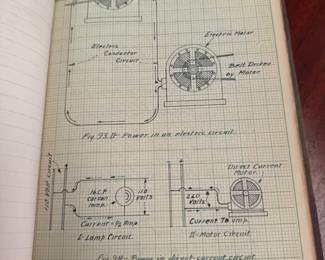 Electric Motor
Electric
Conductor
Circuit
Belt Driven
by Motor
Fig 93 II - Power in an electric circuit.
110 Volt circuit
16 C.P.
Carbon
lamp.
110
Volts
Current = 1/2 Amp
I-Lamp Circuit.
Direct Current
Motor.
220
Volts
Current 70 amp.
II-Motor Circuit.
Power in direct-current circuit